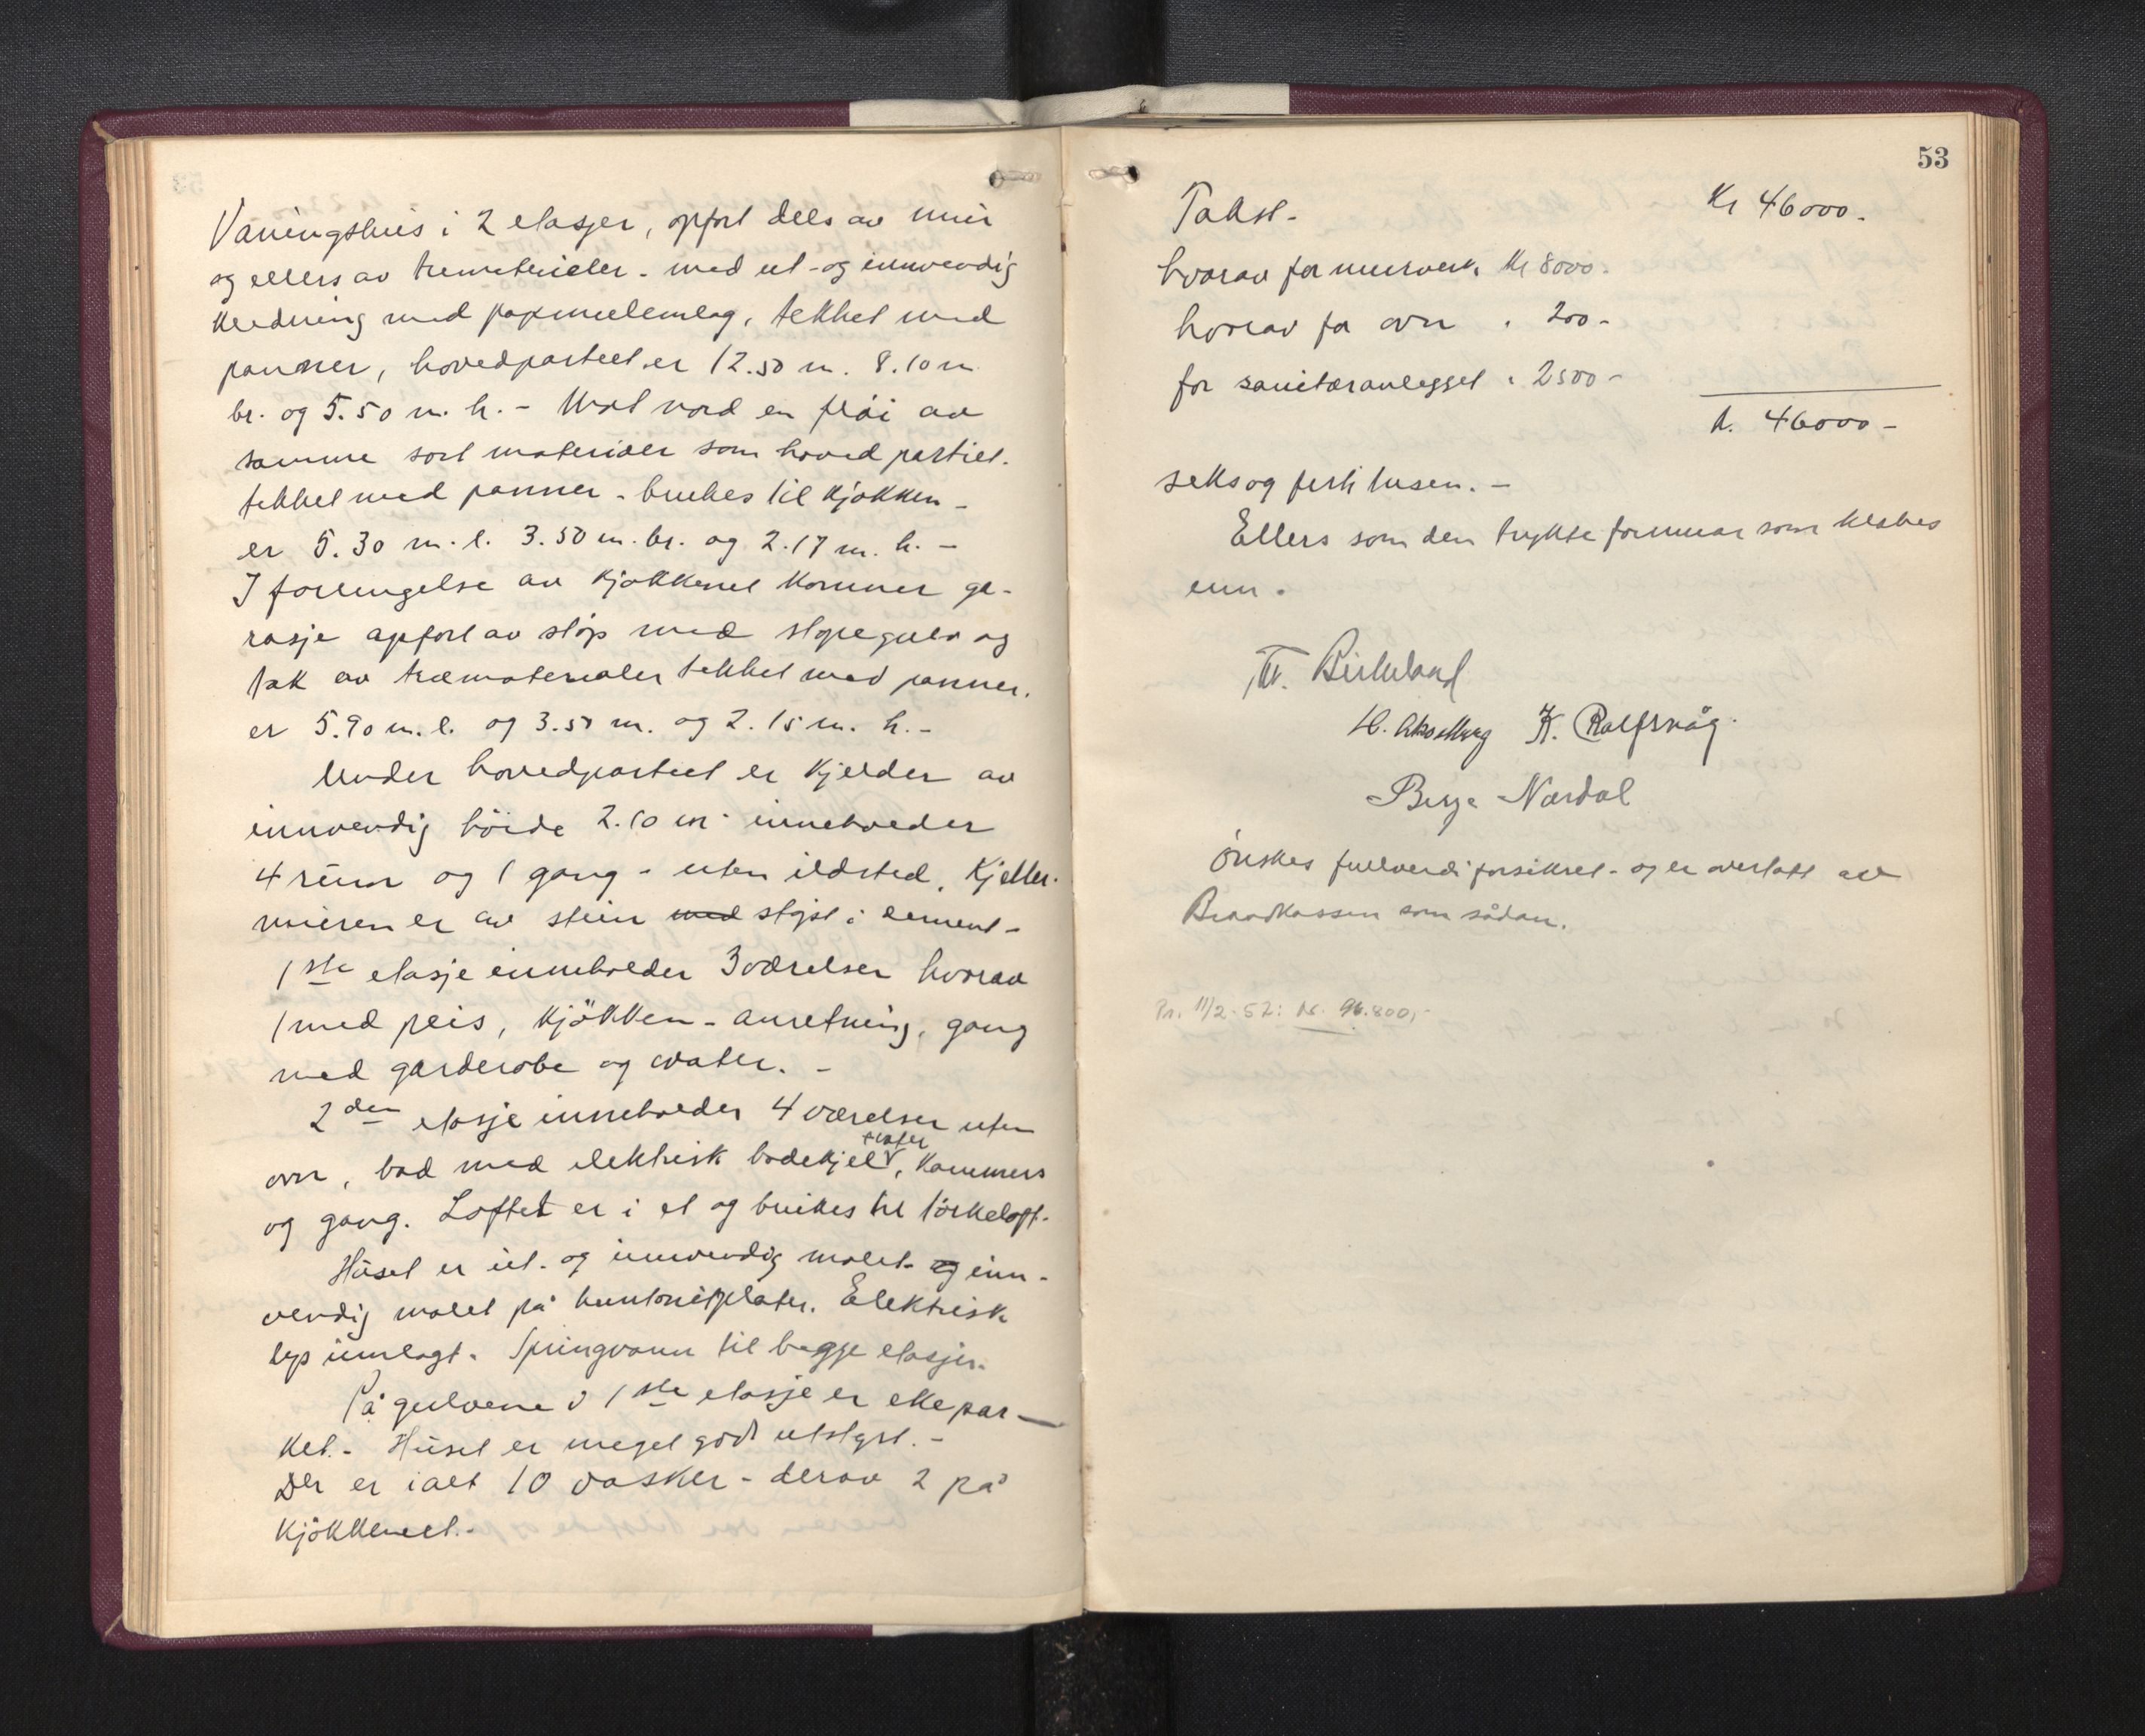 Våningshus i 2 etasjer, opført dels av mur
og ellers av trematerialer - med ut- og innvendig
kledning med papmellemlag, tekket med
panner, hovedpartiet er 12.50 m. 8.10 m
br. og 5.50 m. h. - Mot nord en fløi av
samme sort materialer som hovedpartiet.
tekket med panner - brukes til kjøkken -
er 5.30 m. l. 3.50 m. br. og 2.17 m. h. -
I forlengelse av kjøkkenet kommer ga-
rasje opført av støp med støpegulv og
tak av træmaterialer tekket med panner.
er 5.90 m. l. og 3.50 m. og 2.15 m. h. -
Under hovedpartiet er kjelder av
innvendig höide 2.10 m - inneholder
4 rum og 1 gang - uten ildsted. Kjeller-
muren er av stein med støpt i cement -
1ste etasje inneholder 3 værelser hvorav
1 med peis, kjökken - anretning, gang
med garderobe og water. -
2den etasje inneholder 4 værelser uten
ovn, bad med elektrisk badekjel, water, kammers
og gang. Loftet er i et og brukes til törkeloft.
Huset er ut- og innvendig malet - og inn-
vendig malet på huntonitplater. Elektrisk
lys innlagt. Springvann til begge etasjer.
På gulvene i 1ste etasje er ekepar-
ket. - Huset er meget godt utstyrt. -
Der er ialt 10 vasker - derav 2 på
kjökkenet. -
53
Takst - Kr 46000.
hvorav for murverk Kr 8000.
hvorav for ovn " 200 -
for sanitæranlegget " 2500 -
kr. 46000 -
seks og førti tusen. -
Ellers som den trykte formular som klæbes
inn.
Birkeland
K. Rolfsvåg.
Berge Nordal
Ønskes fullverdiforsikret - og er overlatt av
Brandkassen som sådan.
Pr. 11/2-52: kr. 96.800,-